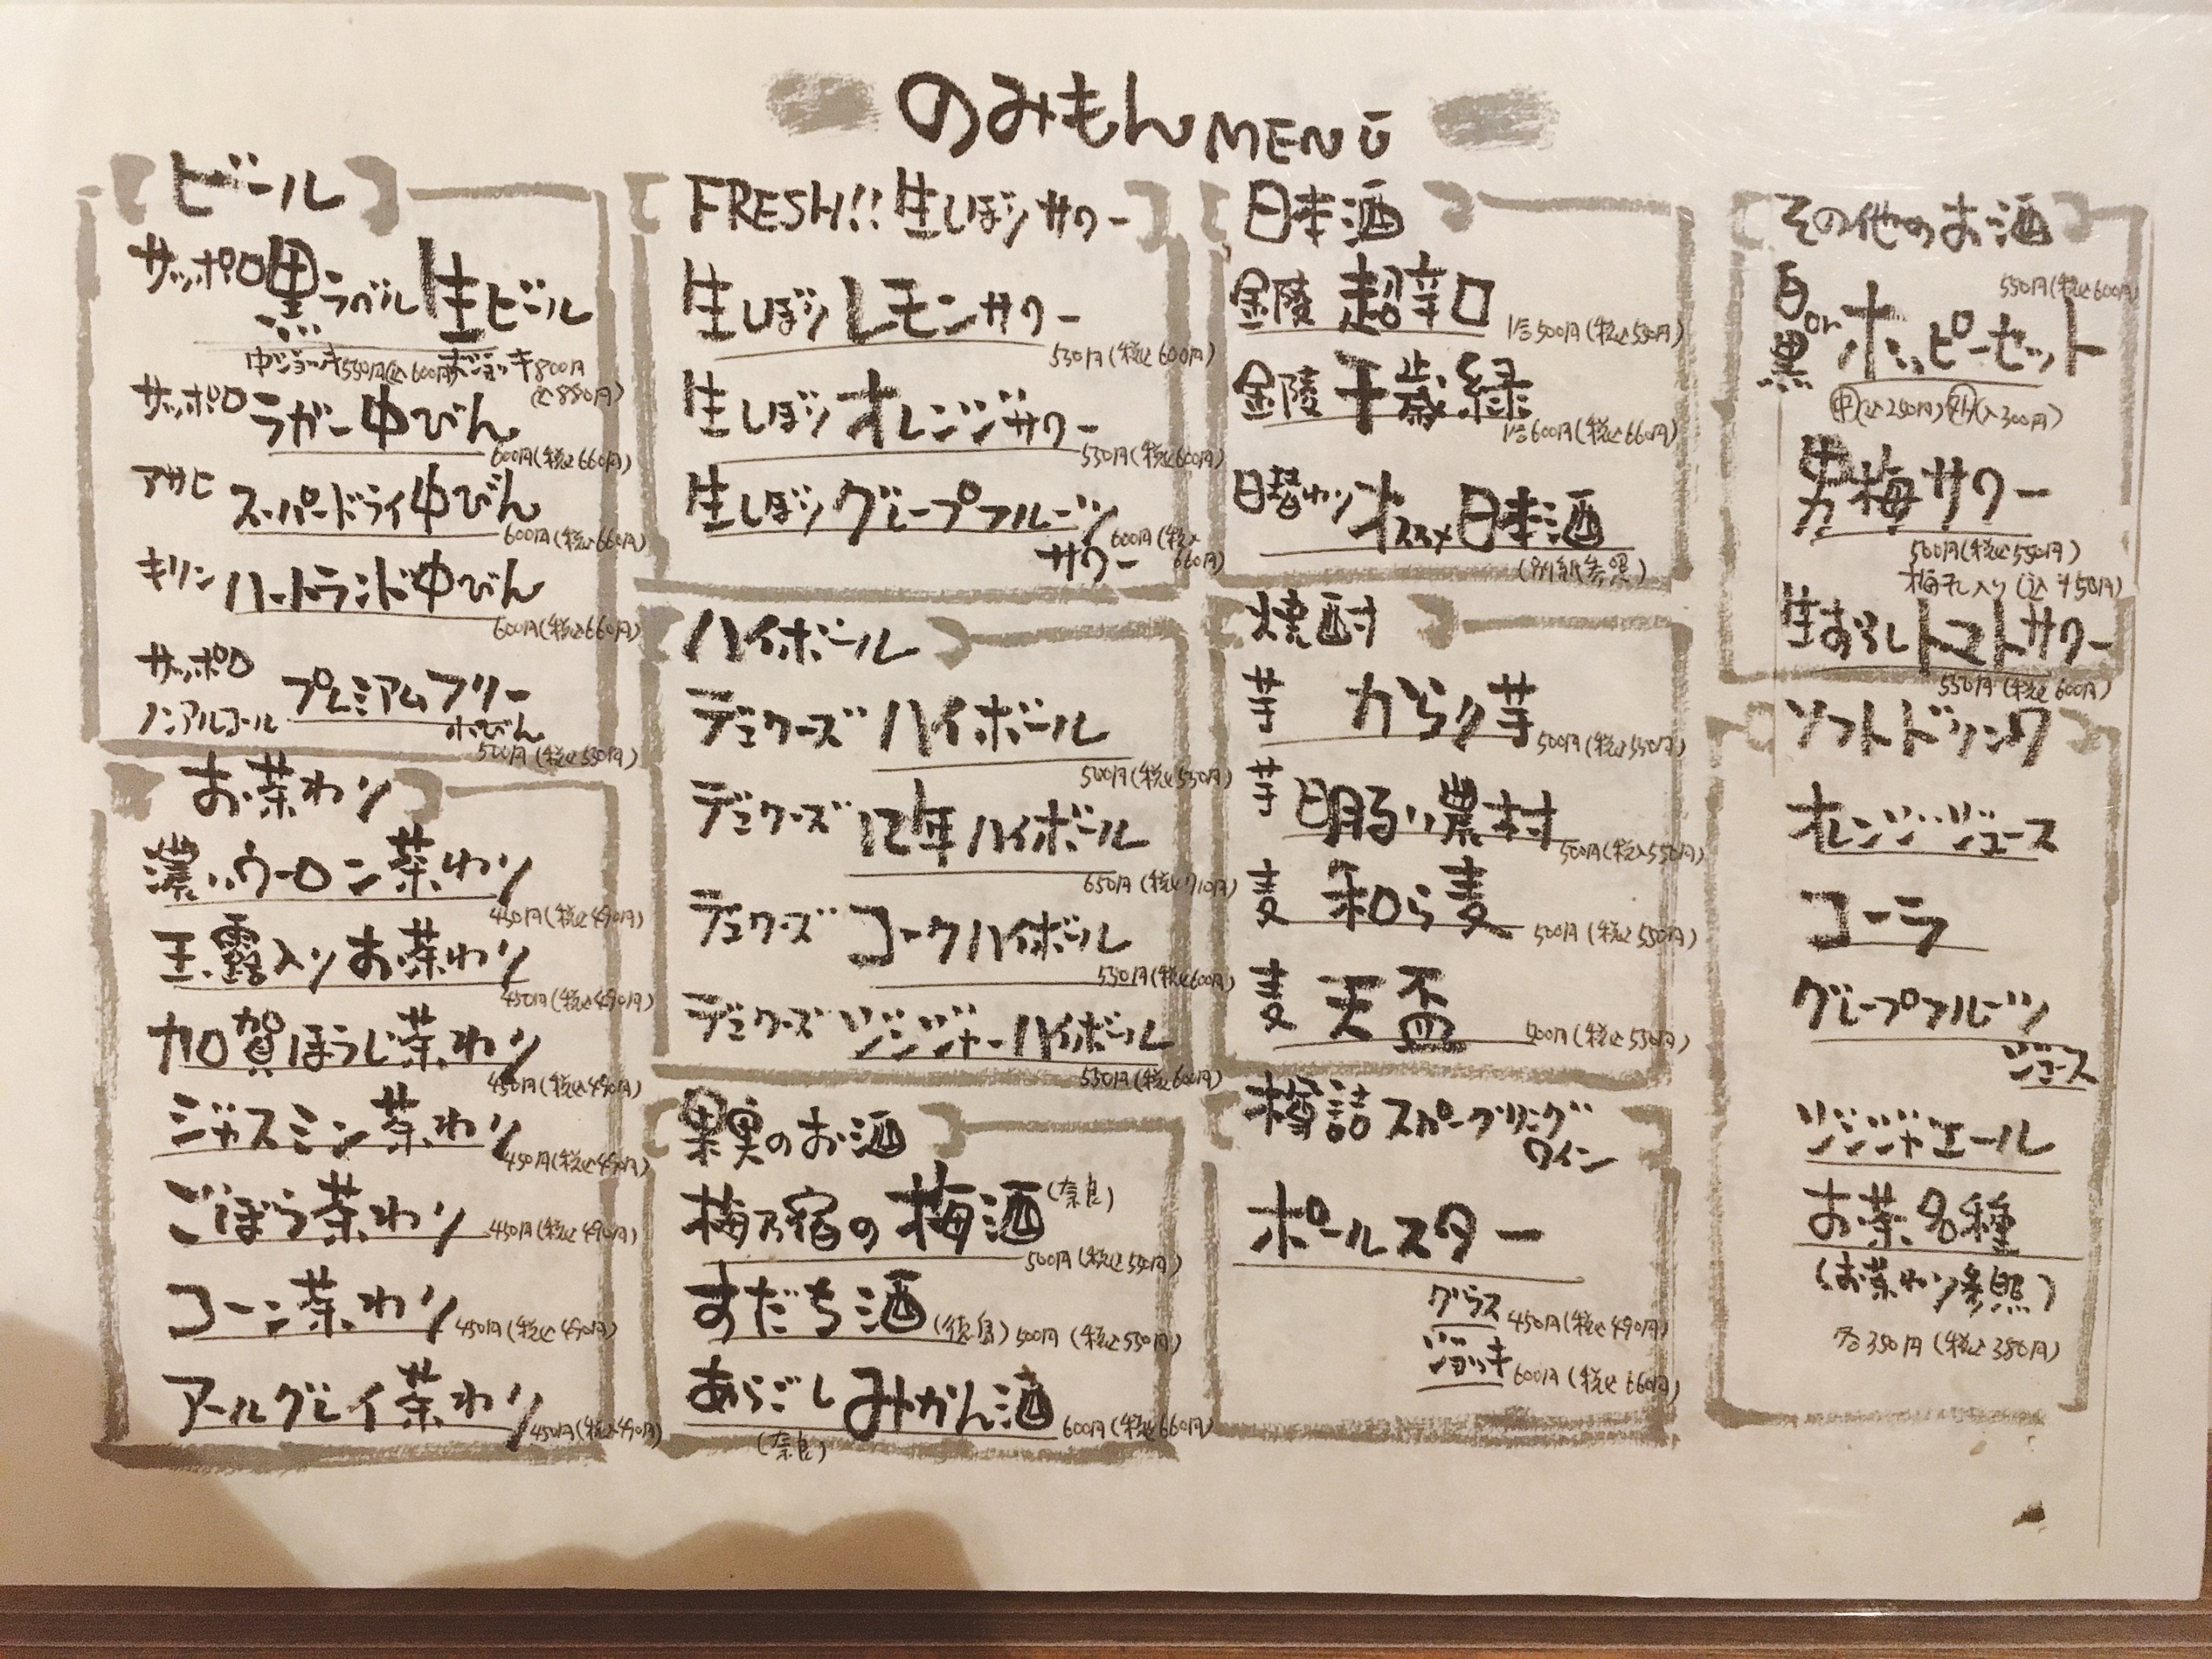 のみもんMENU
ビール
サッポロ黒ラベル生ビール
中ジョッキ550円(込600円)大ジョッキ800円
(込880円)
サッポロ ラガー中びん
600円(税込660円)
アサヒ スーパードライ中びん
600円(税込660円)
キリン ハートランド中びん
600円(税込660円)
サッポロ
ノンアルコール プレミアムフリー
小びん
500円(税込550円)
お茶わり
濃いウーロン茶わり
450円(税込490円)
玉露入りお茶わり
450円(税込490円)
加賀ほうじ茶わり
450円(税込490円)
ジャスミン茶わり
450円(税込490円)
ごぼう茶わり
450円(税込490円)
コーン茶わり
450円(税込490円)
アールグレイ茶わり
450円(税込490円)
FRESH!!生しぼりサワー
生しぼりレモンサワー
550円(税込600円)
生しぼりオレンジサワー
550円(税込600円)
生しぼりグレープフルーツ
サワー
600円(税込
660円)
ハイボール
デュワーズ ハイボール
500円(税込550円)
デュワーズ 12年ハイボール
650円(税込710円)
デュワーズ コークハイボール
550円(税込600円)
デュワーズ ジンジャーハイボール
550円(税込600円)
果実のお酒
梅乃宿の梅酒(奈良)
500円(税込550円)
すだち酒(徳島)500円(税込550円)
あらごしみかん酒
600円(税込660円)
(奈良)
日本酒
金陵 超辛口
1合500円(税込550円)
金陵 千歳緑
1合600円(税込660円)
日替わりオススメ日本酒
(別紙参照)
焼酎
芋 からり芋
500円(税込550円)
芋 明るい農村
500円(税込550円)
麦 和ら麦
500円(税込550円)
麦 天盃
500円(税込550円)
樽詰スパークリング
ワイン
ポールスター
グラス
450円(税込490円)
ジョッキ
600円(税込660円)
その他のお酒
550円(税込600円)
白or黒ホッピーセット
中(込250円)外(込300円)
男梅サワー
500円(税込550円)
梅干入り(込+50円)
生おろしトマトサワー
550円(税込600円)
ソフトドリンク
オレンジジュース
コーラ
グレープフルーツ
ジュース
ジンジャエール
お茶各種
(お茶わり参照)
各350円(税込380円)